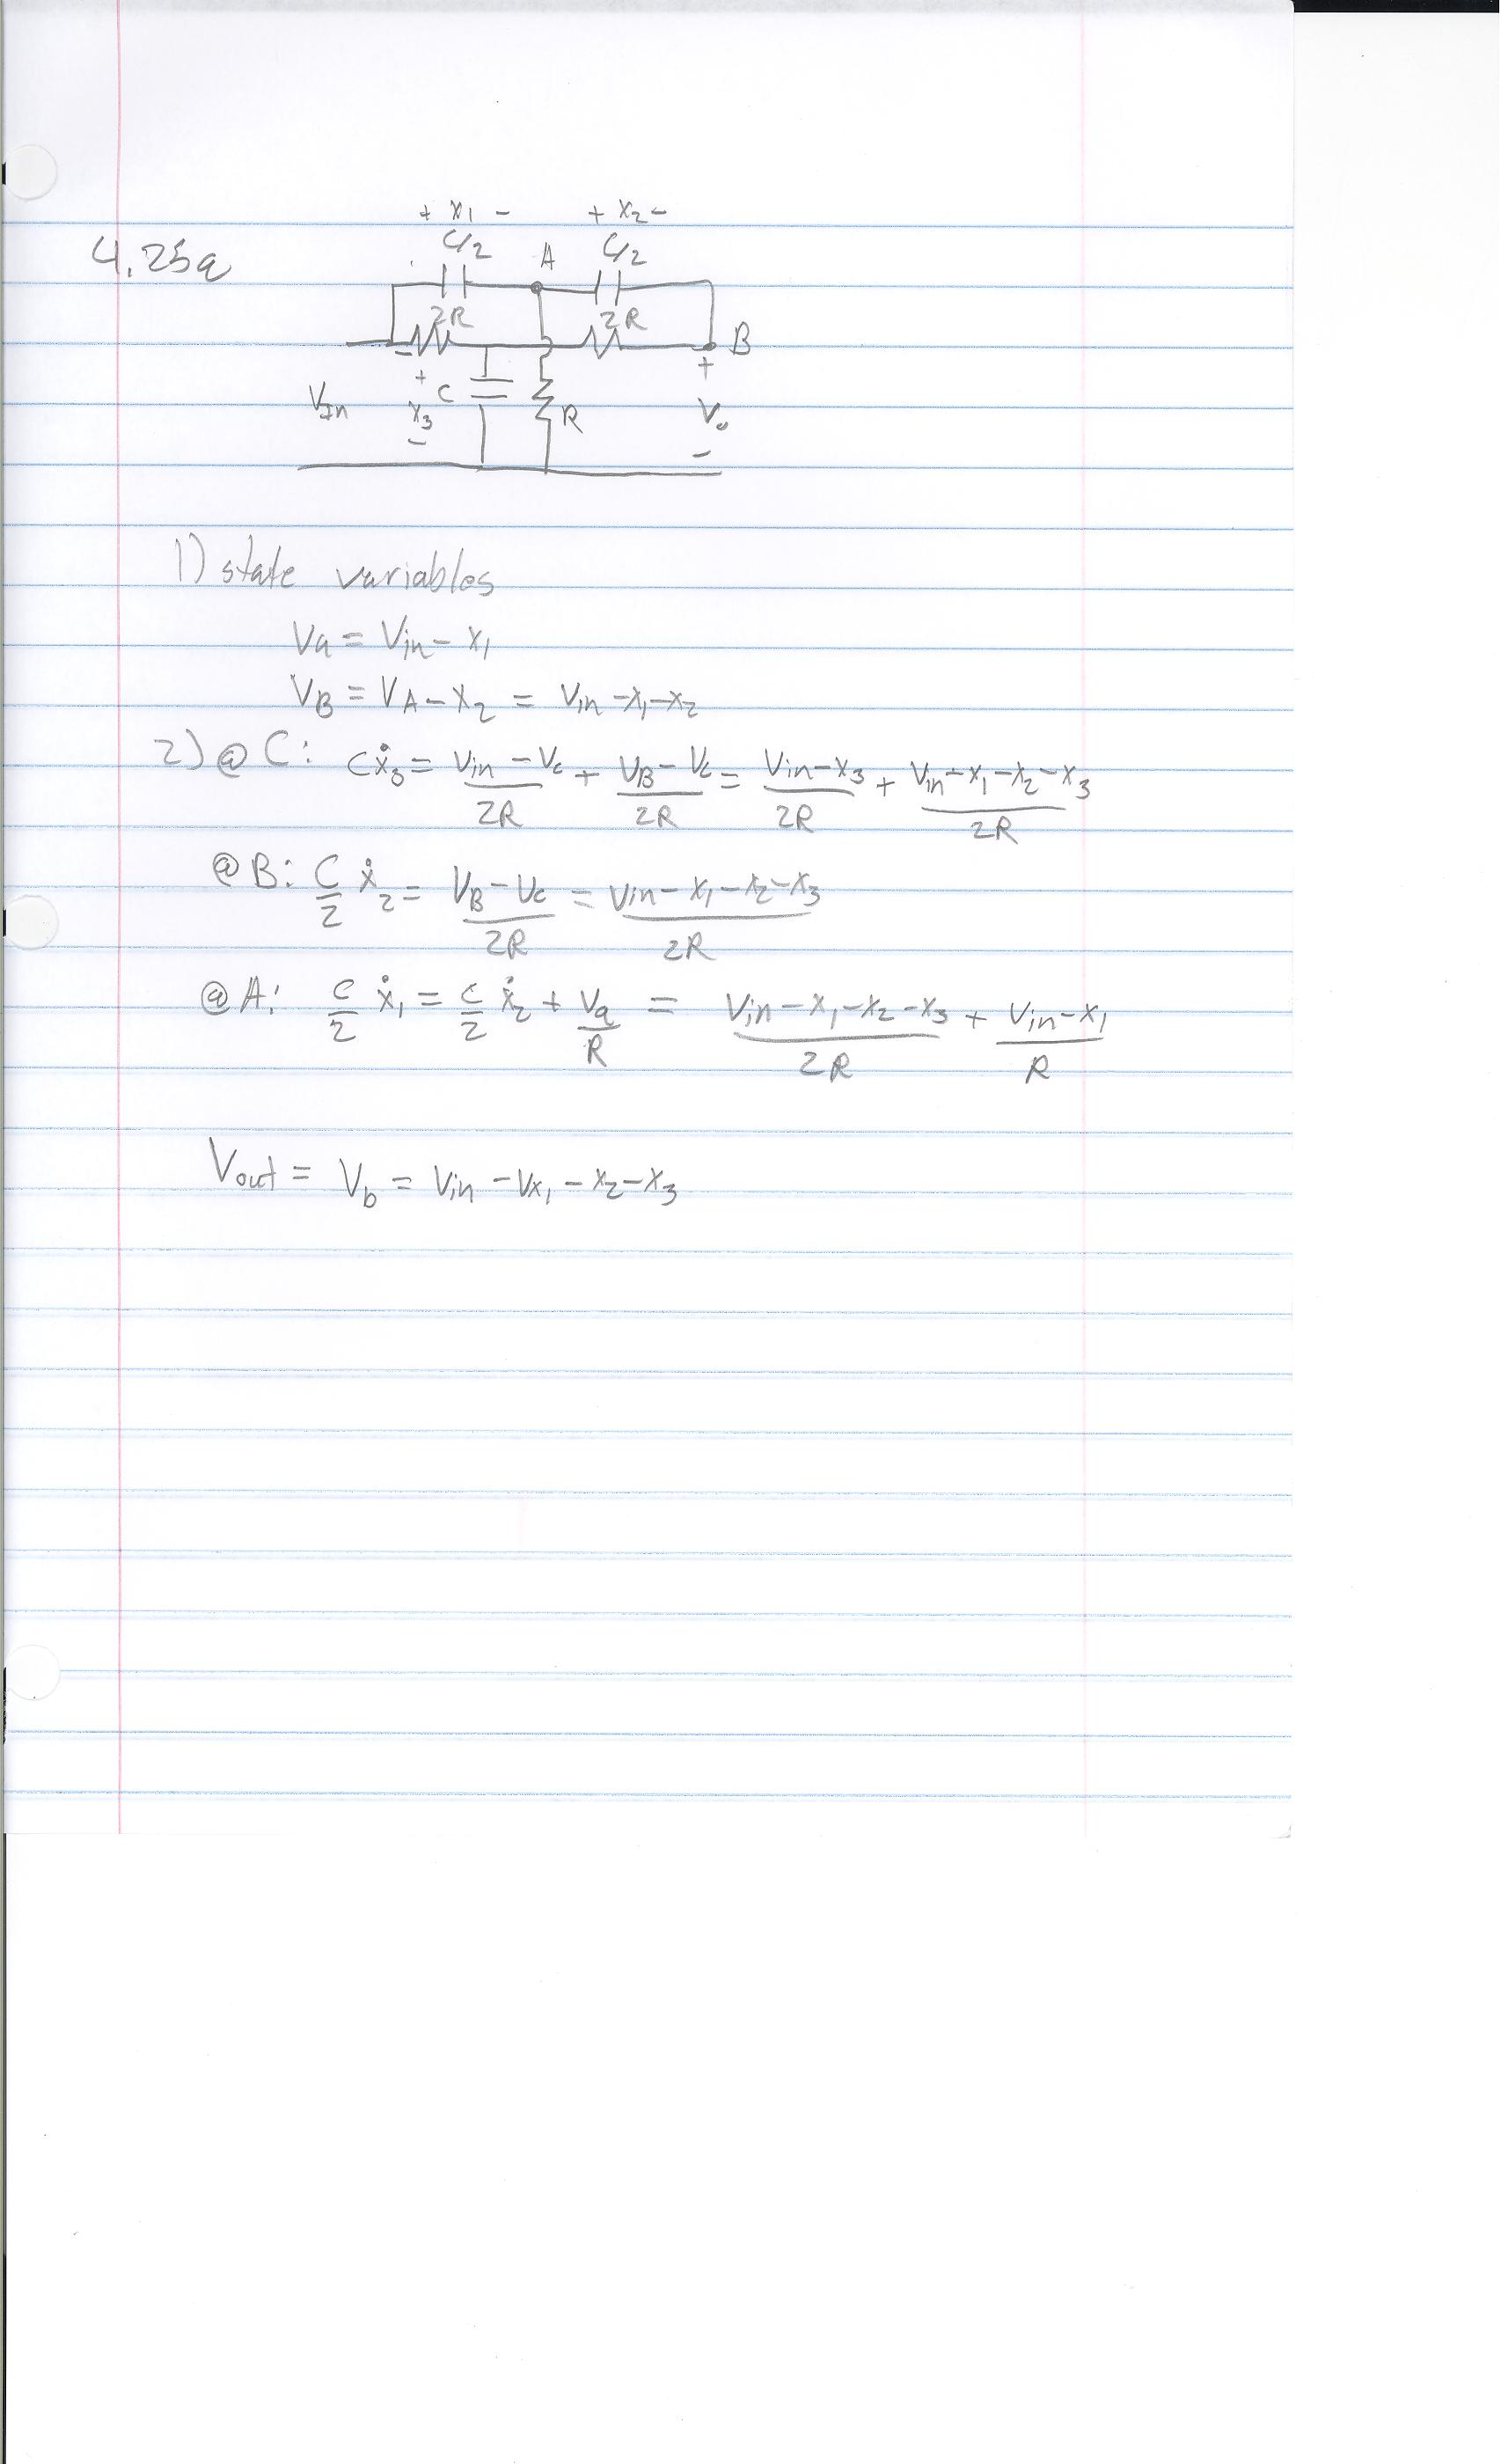 4.25a
+ x₁ − + x₂ −
C/2 A C/2
2R 2R B
+ +
Vin x₃ C R Vo
− −
1) state variables
Va = Vin − x₁
VB = VA − x₂ = Vin − x₁ − x₂
2) @ C: Cẋ₃ = (Vin − Vc)/2R + (VB − Vc)/2R = (Vin − x₃)/2R + (Vin − x₁ − x₂ − x₃)/2R
@ B: C/2 ẋ₂ = (VB − Vc)/2R = (Vin − x₁ − x₂ − x₃)/2R
@ A: C/2 ẋ₁ = C/2 ẋ₂ + Va/R = (Vin − x₁ − x₂ − x₃)/2R + (Vin − x₁)/R
Vout = Vb = Vin − Vx₁ − x₂ − x₃